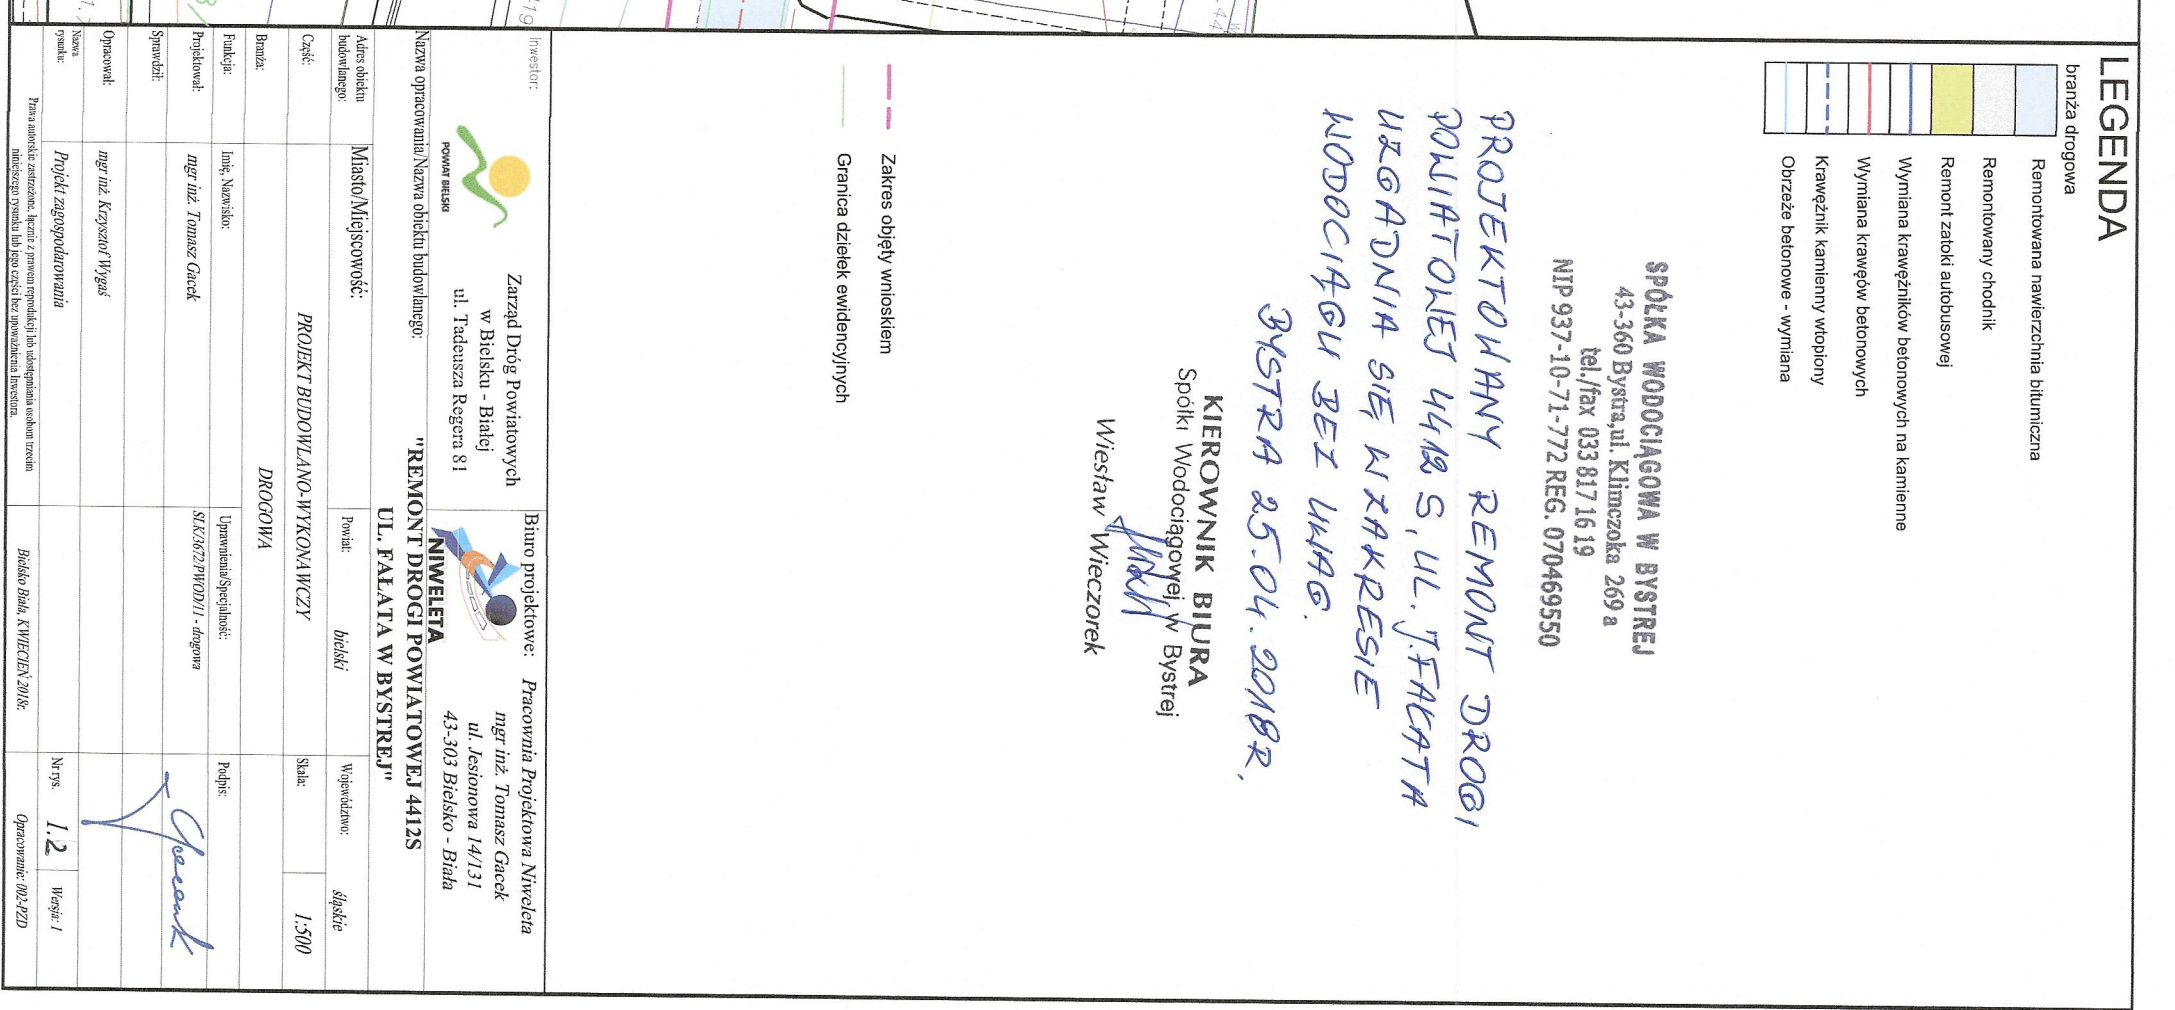 LEGENDA
branża drogowa
Remontowana nawierzchnia bitumiczna
Remontowany chodnik
Remont zatoki autobusowej
Wymiana krawężników betonowych na kamienne
Wymiana krawęsów betonowych
Krawężnik kamienny wtopiony
Obrzeże betonowe - wymiana
SPÓŁKA WODOCIĄGOWA W BYSTREJ
43-360 Bystra, ul. Klimczoka 269 a
tel./fax 033 817 16 19
NIP 937-10-71-772 REG. 070469550
PROJEKTOWANY REMONT DROGI
POWIATOWEJ 4412 S, UL. J. FAŁATA
UZGADNIA SIĘ W ZAKRESIE
WODOCIĄGU BEZ UWAG.
BYSTRA 25.04.2018R.
KIEROWNIK BIURA
Spółki Wodociągowej w Bystrej
Wiesław Wieczorek
Zakres objęty wnioskiem
Granica dziełek ewidencyjnych
Inwestor:
POWIAT BIELSKI
Zarząd Dróg Powiatowych
w Bielsku - Białej
ul. Tadeusza Regera 81
Biuro projektowe:
NIWELETA
Pracownia Projektowa Niweleta
mgr inż. Tomasz Gacek
ul. Jesionowa 14/131
43-303 Bielsko - Biała
Nazwa opracowania/Nazwa obiektu budowlanego:
"REMONT DROGI POWIATOWEJ 4412S
UL. FAŁATA W BYSTREJ"
Adres obiektu
budowlanego:
Miasto/Miejscowość:
Powiat:
bielski
Województwo:
śląskie
Część:
PROJEKT BUDOWLANO-WYKONAWCZY
Skala:
1:500
Branża:
DROGOWA
Funkcja:
Imię, Nazwisko:
Uprawnienia/Specjalność:
Podpis:
Projektował:
mgr inż. Tomasz Gacek
SLK/3672/PWOD/11 - drogowa
Sprawdził:
Opracował:
mgr inż. Krzysztof Wygaś
Nazwa
rysunku:
Projekt zagospodarowania
Nr rys.
1.2
Wersja: 1
Prawa autorskie zastrzeżone, łącznie z prawem reprodukcji lub udostępniania osobom trzecim
niniejszego rysunku lub jego części bez upoważnienia Inwestora.
Bielsko Biała, KWIECIEŃ 2018r.
Opracowanie: 002-PZD